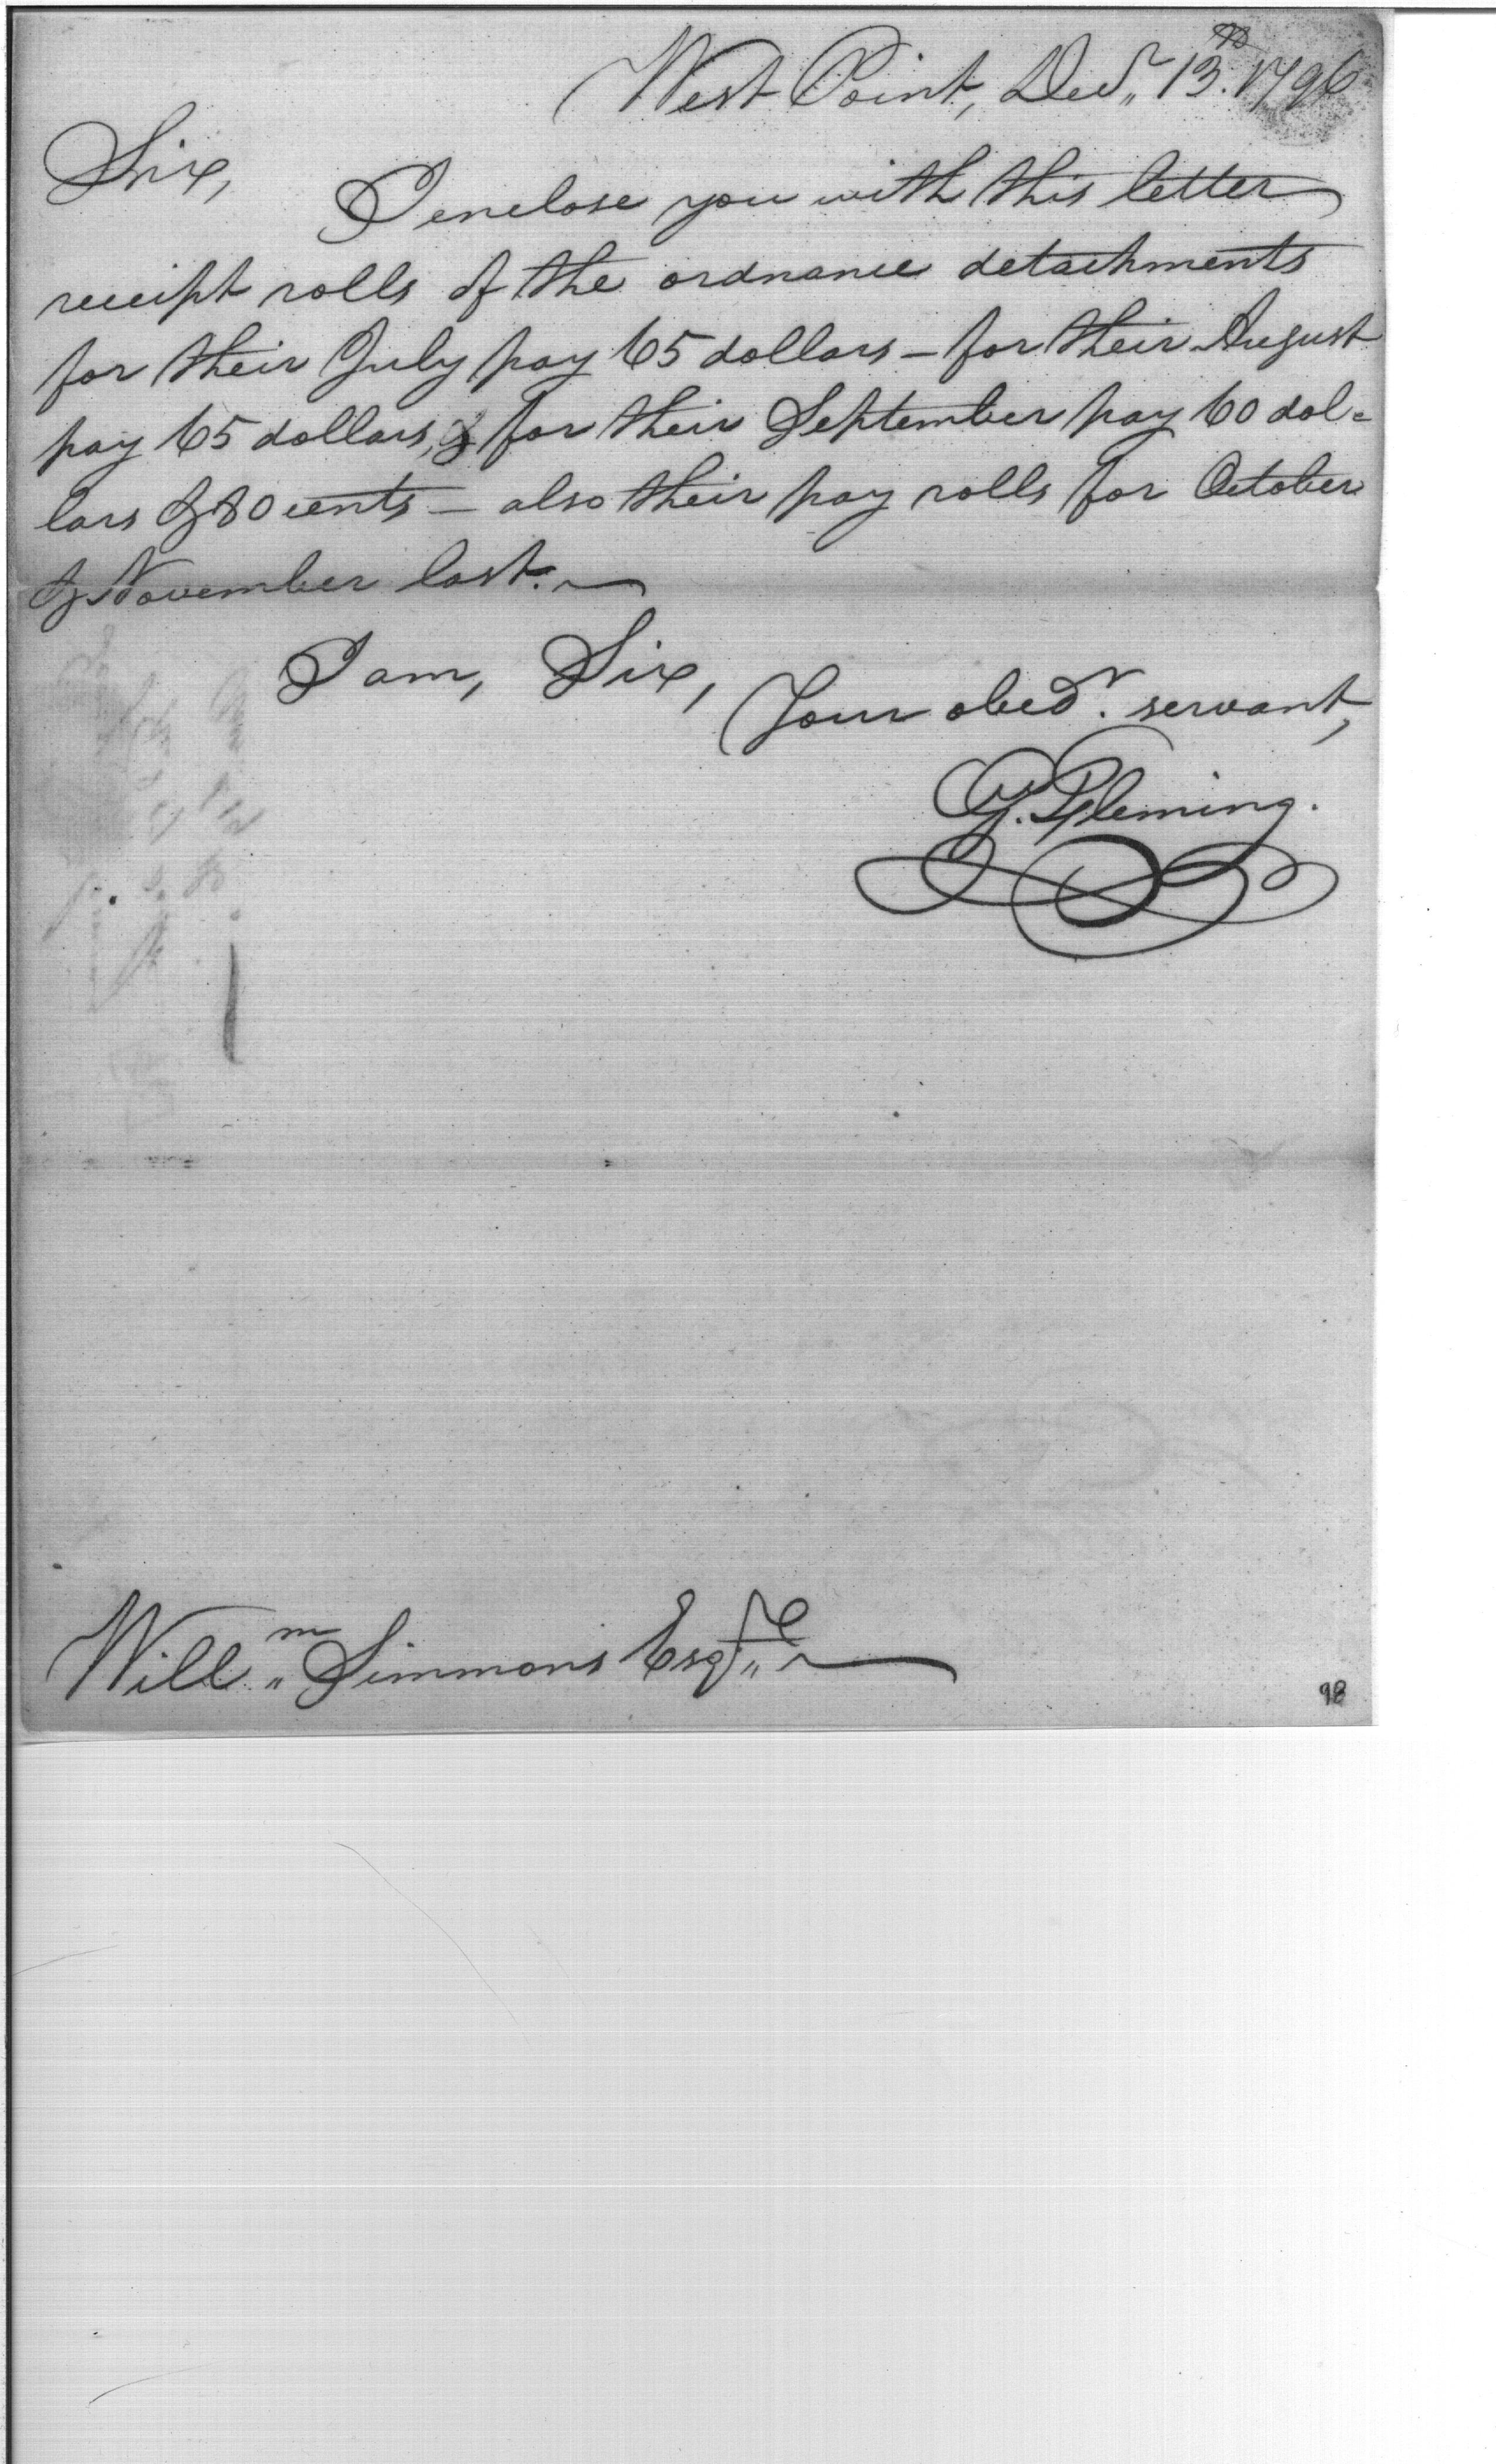 West Point, Decr. 13th. 1796
Sir,
I enclose you with this letter
receipt rolls of the ordnance detachments
for their July pay 65 dollars – for their August
pay 65 dollars, & for their September pay 60 dol-
lars & 80 cents – also their pay rolls for October
& November last.
I am, Sir,
Your obedt. servant,
G. Fleming.
Willm. Simmons Esqre.
98